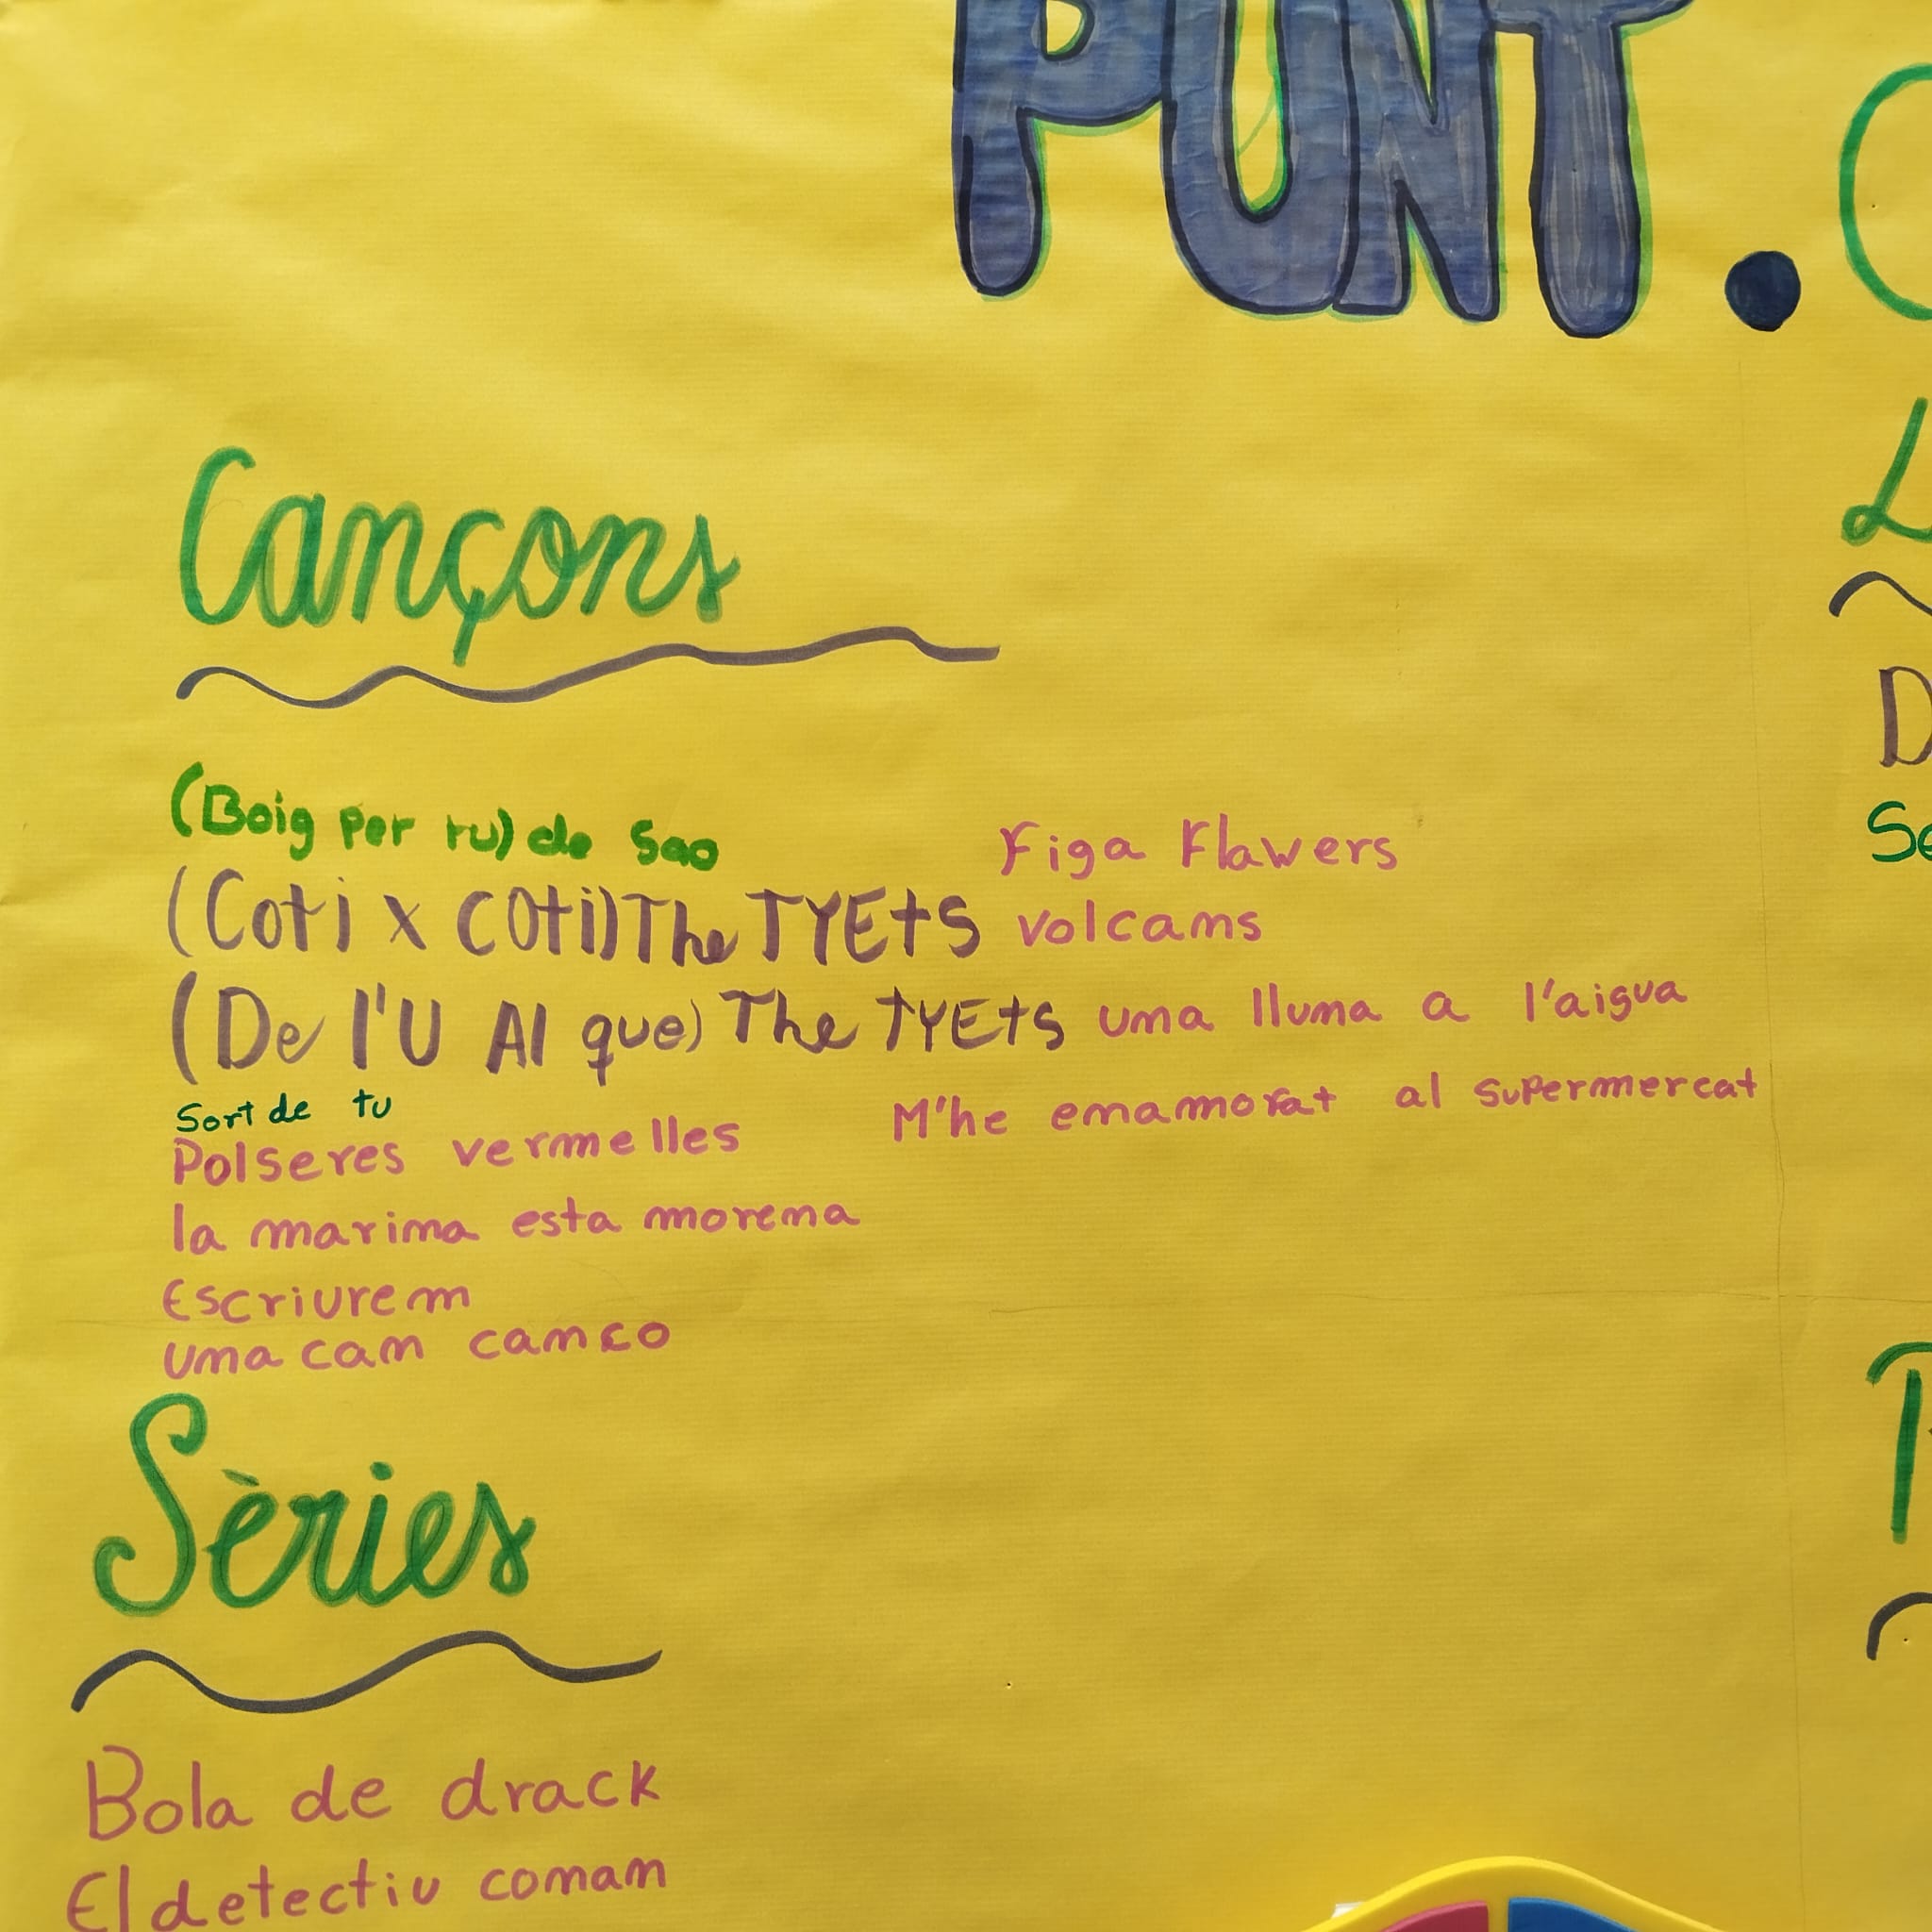 PUNT.
Cançons
(Boig per tu) de Sao
(Coti x COti) The TYEtS
(De l'U Al que) The TYEtS
Sort de tu
Polseres vermelles
la marima esta morema
Escriurem
uma cam camço
Figa Flawers
volcams
uma lluma a l'aigua
M'he emamorat al supermercat
Sèries
Bola de drack
El detectiu comam